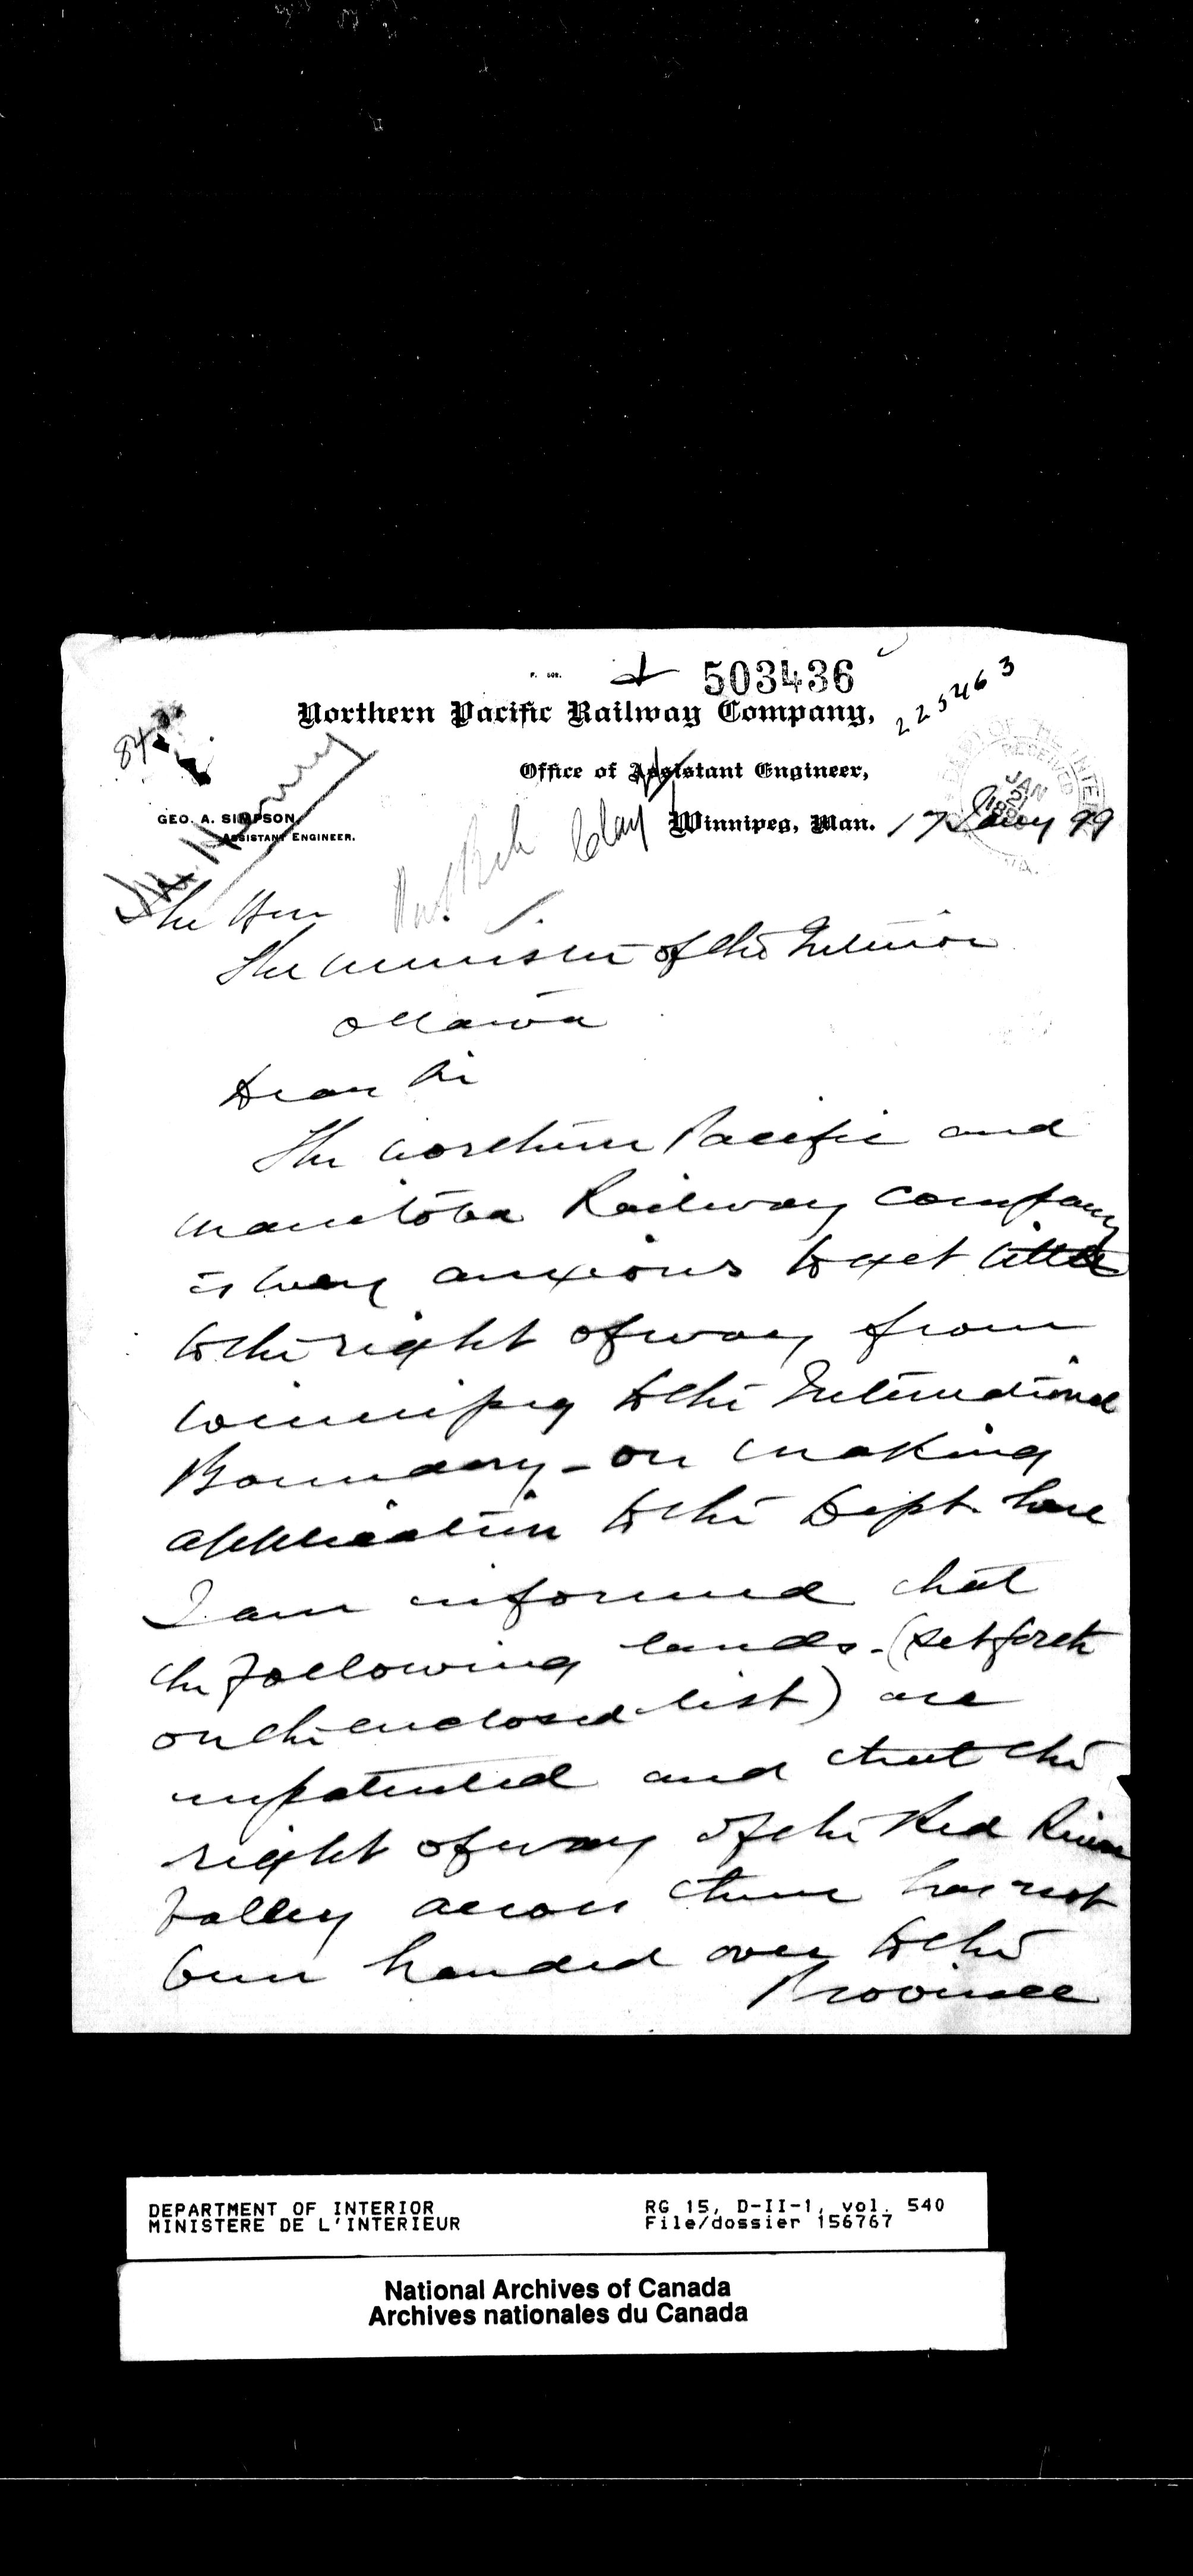 P. 506.
503436
225463
Northern Pacific Railway Company,
84
Office of Assistant Engineer,
GEO. A. SIMPSON,
ASSISTANT ENGINEER.
Winnipeg, Man. 17 Jany 99
RECEIVED
JAN
21
The Hon
The Minister of the Interior
Ottawa
Dear Sir
The Northern Pacific and
Manitoba Railway Company
is very anxious to get title
to the right of way from
Winnipeg to the International
Boundary - on making
application to the Dept. here
I am informed that
the following lands - (set forth
on the enclosed list) are
unpatented and that the
right of way of the Red River
Valley across them has not
been handed over to the
Province
DEPARTMENT OF INTERIOR
MINISTERE DE L'INTERIEUR
RG 15, D-II-1, vol. 540
File/dossier 156767
National Archives of Canada
Archives nationales du Canada